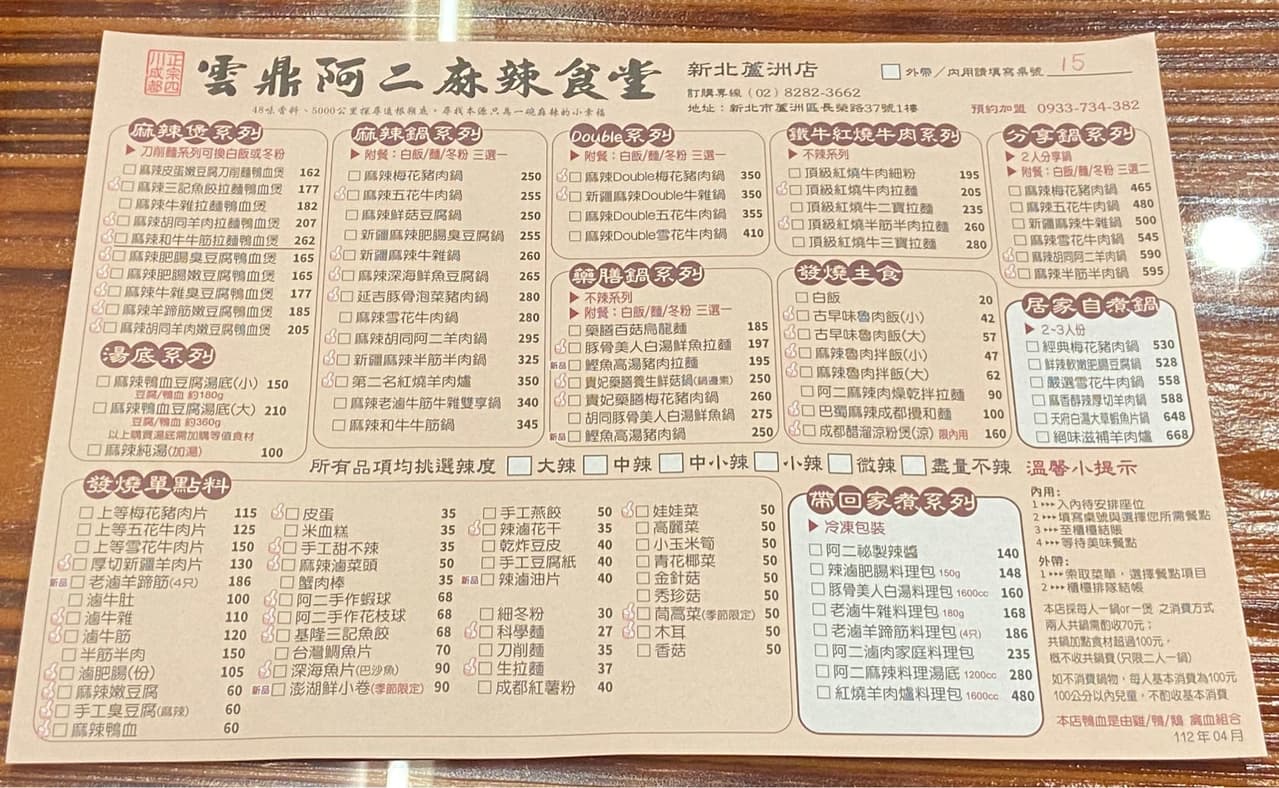 正宗四川成都
雲鼎阿二麻辣食堂
新北蘆洲店
外帶／內用請填寫桌號 15
訂購專線（02）8282-3662
48味香料、5000公里探尋追根朔底，尋找本源只為一碗麻辣的小幸福
地址：新北市蘆洲區長榮路37號1樓
預約加盟 0933-734-382
麻辣煲系列
▶ 刀削麵系列可換白飯或冬粉
麻辣皮蛋嫩豆腐刀削麵鴨血煲 162
麻辣三記魚餃拉麵鴨血煲 177
麻辣牛雜拉麵鴨血煲 182
麻辣胡同羊肉拉麵鴨血煲 207
麻辣和牛牛筋拉麵鴨血煲 262
麻辣肥腸臭豆腐鴨血煲 165
麻辣肥腸嫩豆腐鴨血煲 165
麻辣牛雜臭豆腐鴨血煲 177
麻辣羊蹄筋嫩豆腐鴨血煲 185
麻辣胡同羊肉嫩豆腐鴨血煲 205
湯底系列
麻辣鴨血豆腐湯底(小) 150
豆腐/鴨血 約180g
麻辣鴨血豆腐湯底(大) 210
豆腐/鴨血 約360g
以上購買湯底需加購等值食材
麻辣純湯(加湯) 100
麻辣鍋系列
▶ 附餐：白飯/麵/冬粉 三選一
麻辣梅花豬肉鍋 250
麻辣五花牛肉鍋 255
麻辣鮮菇豆腐鍋 250
新疆麻辣肥腸臭豆腐鍋 255
新疆麻辣牛雜鍋 260
麻辣深海鮮魚豆腐鍋 265
延吉豚骨泡菜豬肉鍋 280
麻辣雪花牛肉鍋 280
麻辣胡同阿二羊肉鍋 295
新疆麻辣半筋半肉鍋 325
第二名紅燒羊肉爐 350
麻辣老滷牛筋牛雜雙享鍋 340
麻辣和牛牛筋鍋 345
Double系列
▶ 附餐：白飯/麵/冬粉 三選一
麻辣Double梅花豬肉鍋 350
新疆麻辣Double牛雜鍋 350
麻辣Double五花牛肉鍋 355
麻辣Double雪花牛肉鍋 410
藥膳鍋系列
▶ 不辣系列
▶ 附餐：白飯/麵/冬粉 三選一
藥膳百菇烏龍麵 185
豚骨美人白湯鮮魚拉麵 197
新品 鰹魚高湯豬肉拉麵 195
貴妃藥膳養生鮮菇鍋(鍋邊素) 250
貴妃藥膳梅花豬肉鍋 260
胡同豚骨美人白湯鮮魚鍋 275
新品 鰹魚高湯豬肉鍋 250
鐵牛紅燒牛肉系列
▶ 不辣系列
頂級紅燒牛肉細粉 195
頂級紅燒牛肉拉麵 205
頂級紅燒牛二寶拉麵 235
頂級紅燒半筋半肉拉麵 260
頂級紅燒牛三寶拉麵 280
發燒主食
白飯 20
古早味魯肉飯(小) 42
古早味魯肉飯(大) 57
麻辣魯肉拌飯(小) 47
麻辣魯肉拌飯(大) 62
阿二麻辣肉燥乾拌拉麵 90
巴蜀麻辣成都攪和麵 100
成都醋溜涼粉煲(涼) 限內用 160
分享鍋系列
▶ 2人分享鍋
▶ 附餐：白飯/麵/冬粉 三選二
麻辣梅花豬肉鍋 465
麻辣五花牛肉鍋 480
新疆麻辣牛雜鍋 500
麻辣雪花牛肉鍋 545
麻辣胡同阿二羊肉鍋 590
麻辣半筋半肉鍋 595
居家自煮鍋
▶ 2~3人份
經典梅花豬肉鍋 530
鮮辣軟嫩肥腸豆腐鍋 528
嚴選雪花牛肉鍋 558
麻香醇辣厚切羊肉鍋 588
天府白湯大草蝦魚片鍋 648
絕味滋補羊肉爐 668
所有品項均挑選辣度 大辣 中辣 中小辣 小辣 微辣 盡量不辣
發燒單點料
上等梅花豬肉片 115
上等五花牛肉片 125
上等雪花牛肉片 150
厚切新疆羊肉片 130
新品 老滷羊蹄筋(4只) 186
滷牛肚 100
滷牛雜 110
滷牛筋 120
半筋半肉 150
滷肥腸(份) 105
麻辣嫩豆腐 60
手工臭豆腐(麻辣) 60
麻辣鴨血 60
皮蛋 35
米血糕 35
手工甜不辣 35
麻辣滷菜頭 50
蟹肉棒 35
阿二手作蝦球 68
阿二手作花枝球 68
基隆三記魚餃 68
台灣鯛魚片 70
深海魚片(巴沙魚) 90
新品 澎湖鮮小卷(季節限定) 90
手工燕餃 50
辣滷花干 35
乾炸豆皮 40
手工豆腐紙 40
新品 辣滷油片 40
細冬粉 30
科學麵 27
刀削麵 35
生拉麵 37
成都紅薯粉 40
娃娃菜 50
高麗菜 50
小玉米筍 50
青花椰菜 50
金針菇 50
秀珍菇 50
茼萵菜(季節限定) 50
木耳 50
香菇 50
帶回家煮系列
▶ 冷凍包裝
阿二祕製辣醬 140
辣滷肥腸料理包 150g 148
豚骨美人白湯料理包 1600cc 160
老滷牛雜料理包 180g 168
老滷羊蹄筋料理包 (4只) 186
阿二滷肉家庭料理包 235
阿二麻辣料理湯底 1200cc 280
紅燒羊肉爐料理包 1600cc 480
溫馨小提示
內用：
1 ▸▸▸ 入內待安排座位
2 ▸▸▸ 填寫桌號與選擇您所需餐點
3 ▸▸▸ 至櫃檯結帳
4 ▸▸▸ 等待美味餐點
外帶：
1 ▸▸▸ 索取菜單，選擇餐點項目
2 ▸▸▸ 櫃檯排隊結帳
本店採每人一鍋or一煲 之消費方式
兩人共鍋需酌收70元；
共鍋加點食材超過100元，
概不收共鍋費(只限二人一鍋)
如不消費鍋物，每人基本消費為100元
100公分以內兒童，不酌收基本消費
本店鴨血是由雞/鴨/鵝 禽血組合
112 年 04 月